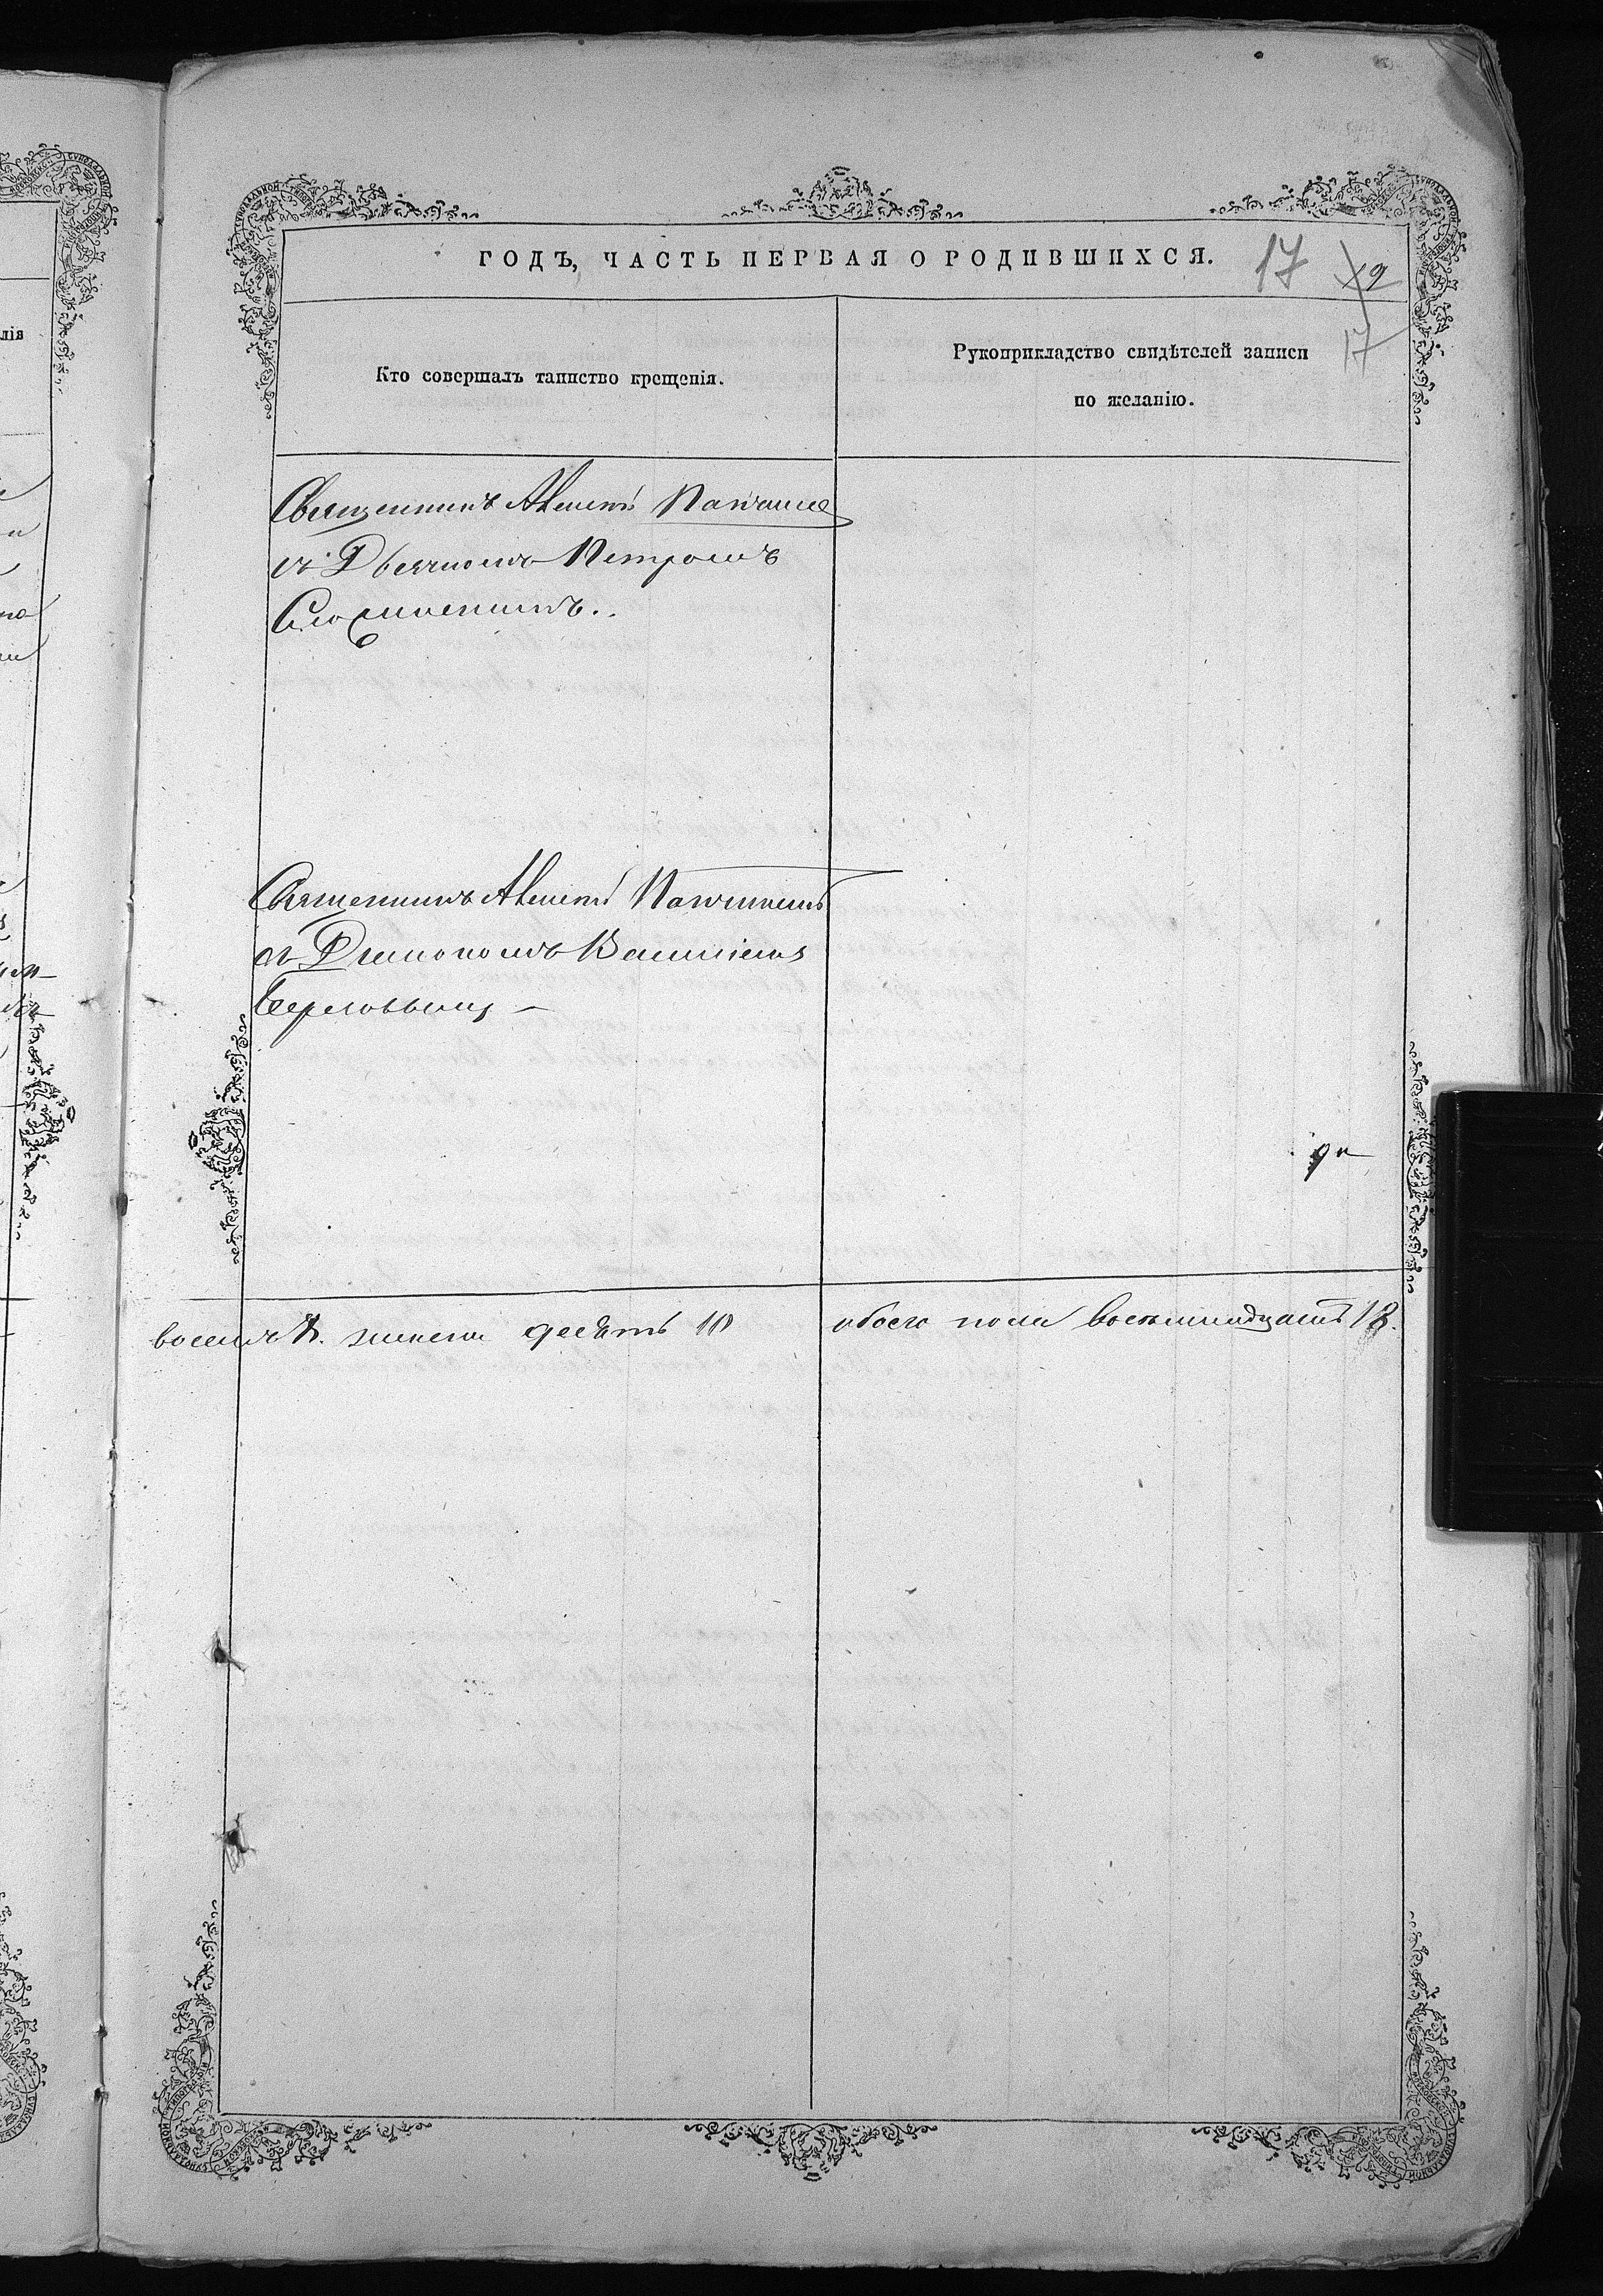 ГОДЪ, ЧАСТЬ ПЕРВАЯ О РОДИВШИХСЯ.
17
19
17
Кто совершалъ таинство крещенія.
Рукоприкладство свидѣтелей записи
по желанію.
Священникъ Алексѣй
съ Дьячкомъ Петромъ
Священникъ Алексѣй
съ Діакономъ
восемь 8. женска десять 10
обоего пола восемнадцать 18.
лія